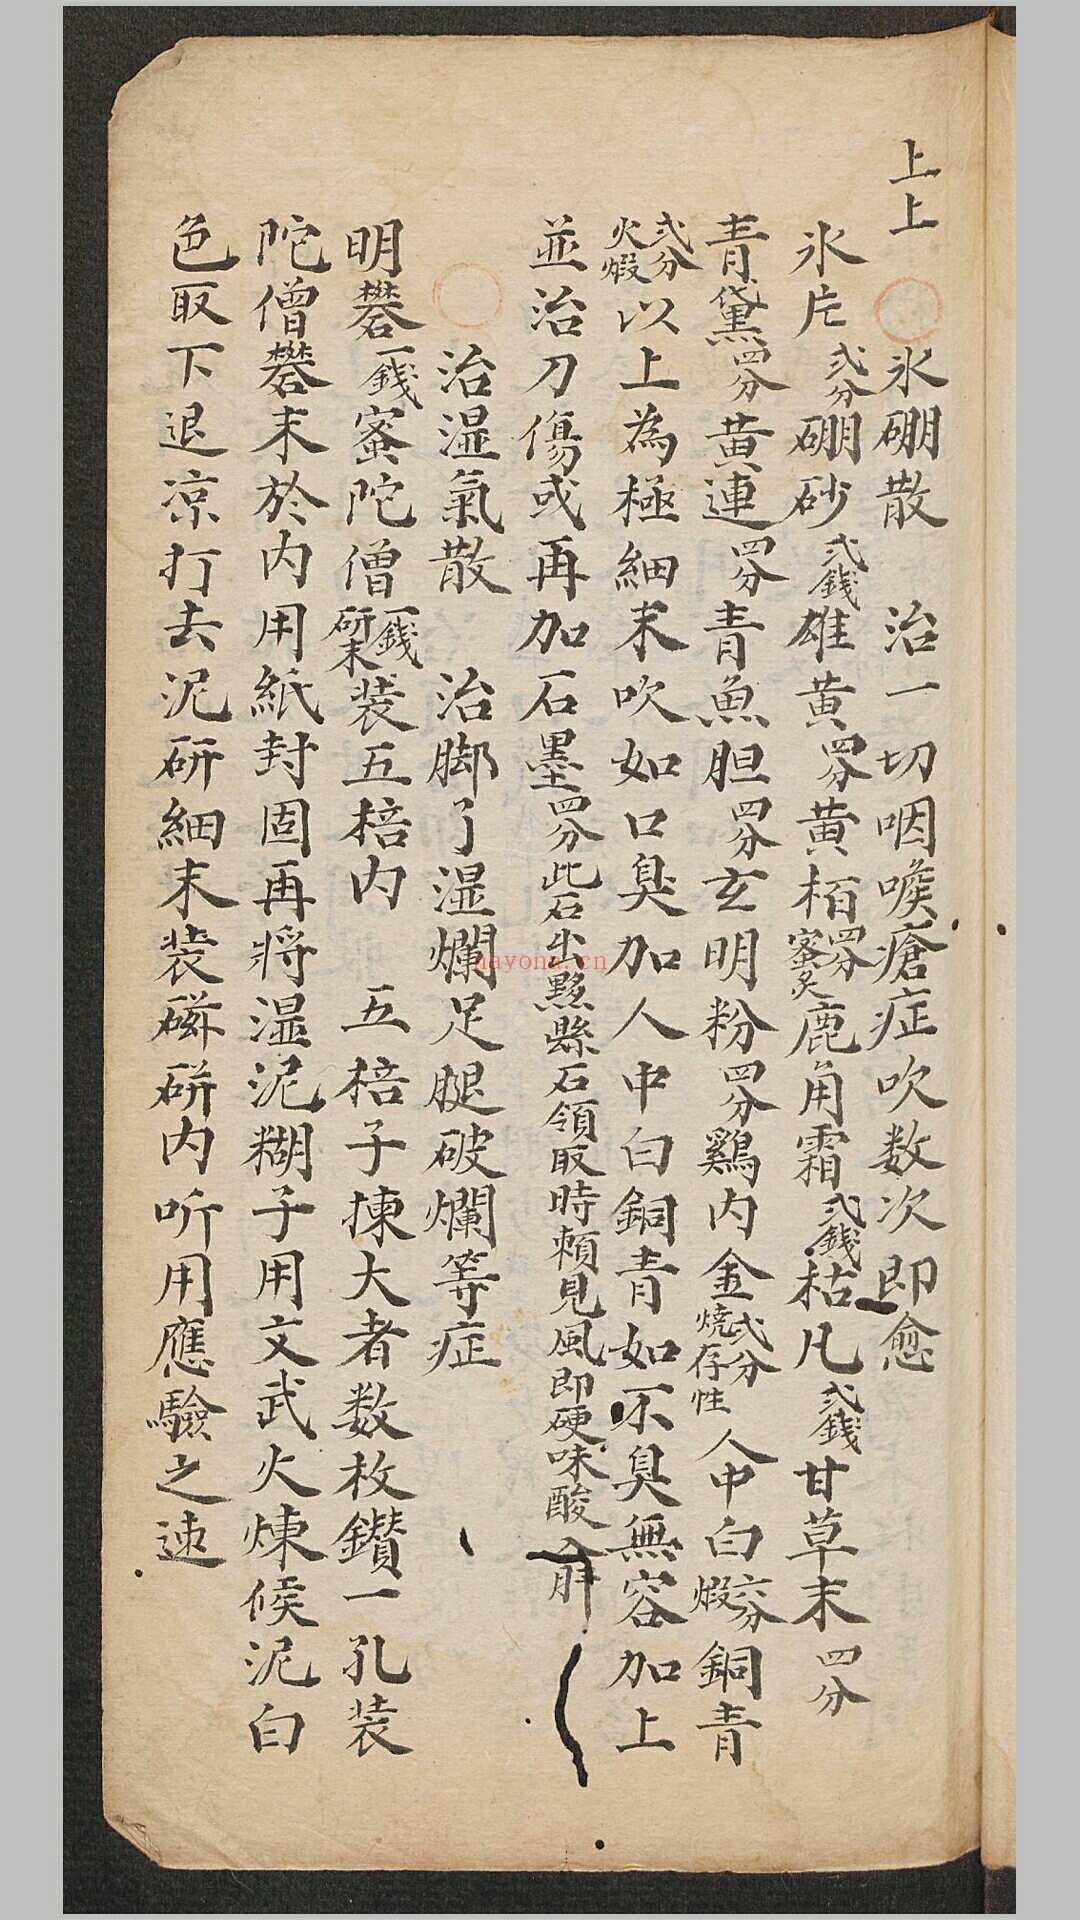 上上
氷硼散　治一切咽喉瘡症吹数次即愈
氷片弍分硼砂弍錢雄黄四分黄栢四分蜜炙鹿角霜弍錢枯凡弍錢甘草末四分
青黛四分黄連四分青魚胆四分玄明粉四分鷄内金弍分燒存性人中白六分煅銅青
弍分火煅以上為極細末吹如口臭加人中白銅青如不臭無容加上
並治刀傷或再加石墨四分此石出黟縣石領取時頼見風即硬味酸
治湿氣散　治脚了湿爛足腿破爛等症
明礬一錢蜜陀僧一錢研末装五棓内　五棓子揀大者数枚鑽一孔装
陀僧礬末於内用紙封固再將湿泥糊子用文武火煉候泥白
色取下退凉打去泥研細末装磁硑内听用應驗之速
nayona.cn